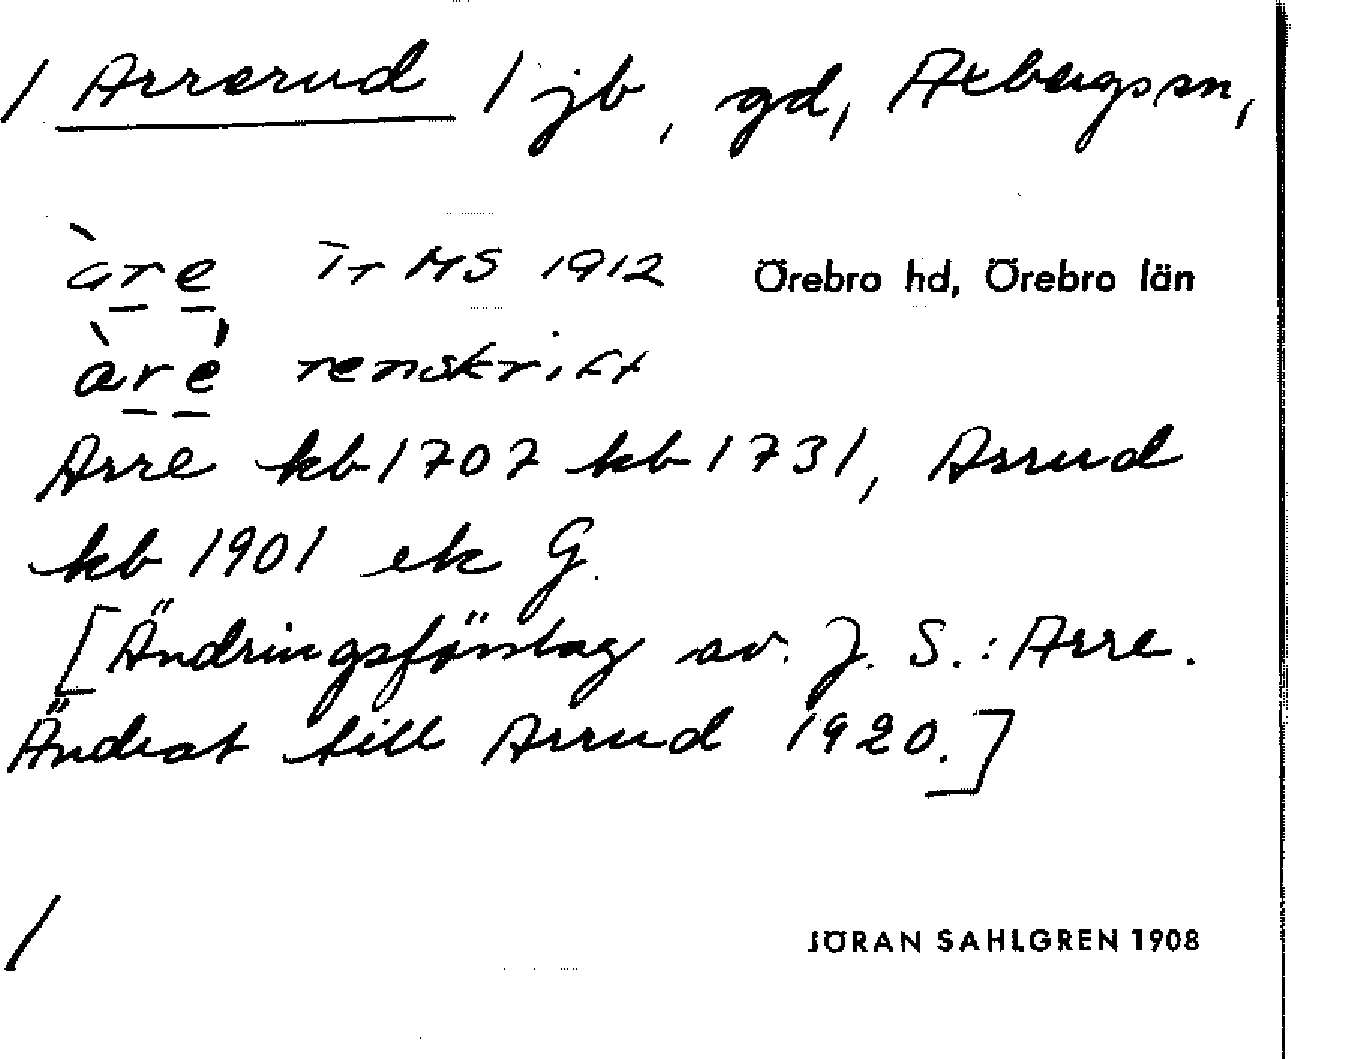 / Arrerud / jb, gd, Axbergs sn,
àre Tr MS 1912 Örebro hd, Örebro län
àré renskrift
Arre kb 1707 kb 1731, Arrud
kb 1901 ek G.
[Ändringsförslag av J. S.: Arre.
Ändrat till Arrud 1920.]
/
JÖRAN SAHLGREN 1908